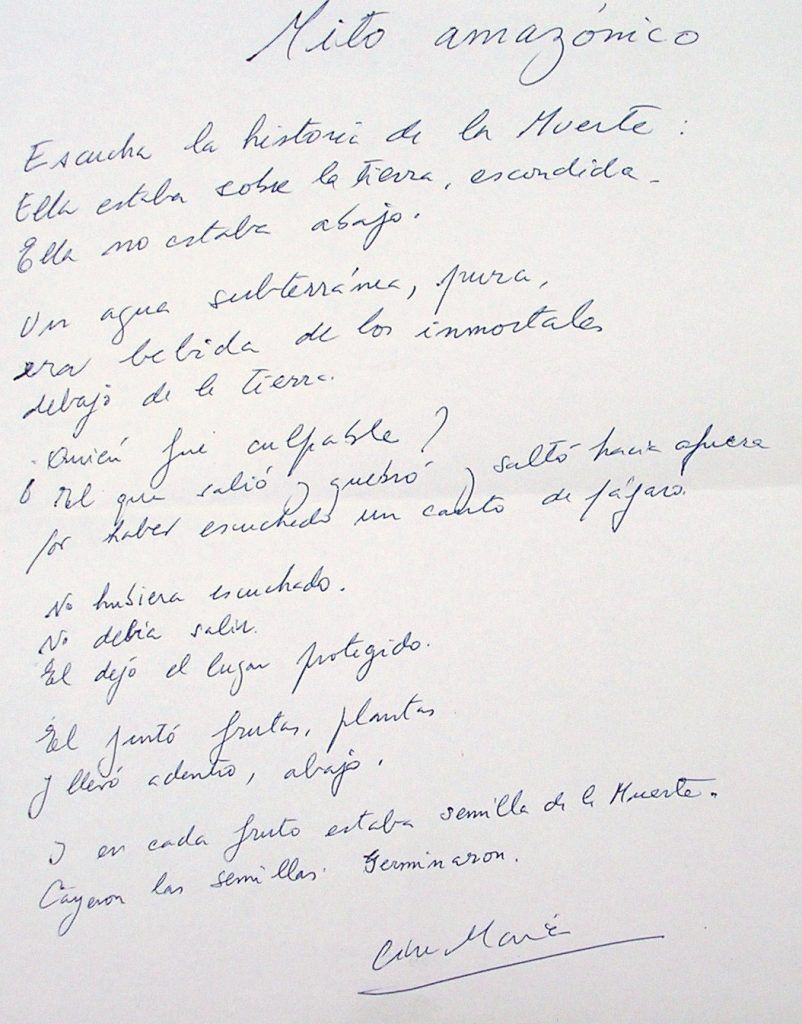 Mito amazónico
Escucha la historia de la Muerte:
Ella estaba sobre la tierra, escondida.
Ella no estaba abajo.
Un agua subterránea, pura,
era bebida de los inmortales
debajo de la tierra.
Quién fue culpable?
El que salió y quebró y saltó hacia afuera
por haber escuchado un canto de pájaro.
No hubiera escuchado.
No debía salir.
Él dejó el lugar protegido.
Él juntó frutas, plantas
y llevó adentro, abajo.
Y en cada fruto estaba semilla de la Muerte.
Cayeron las semillas. Germinaron.